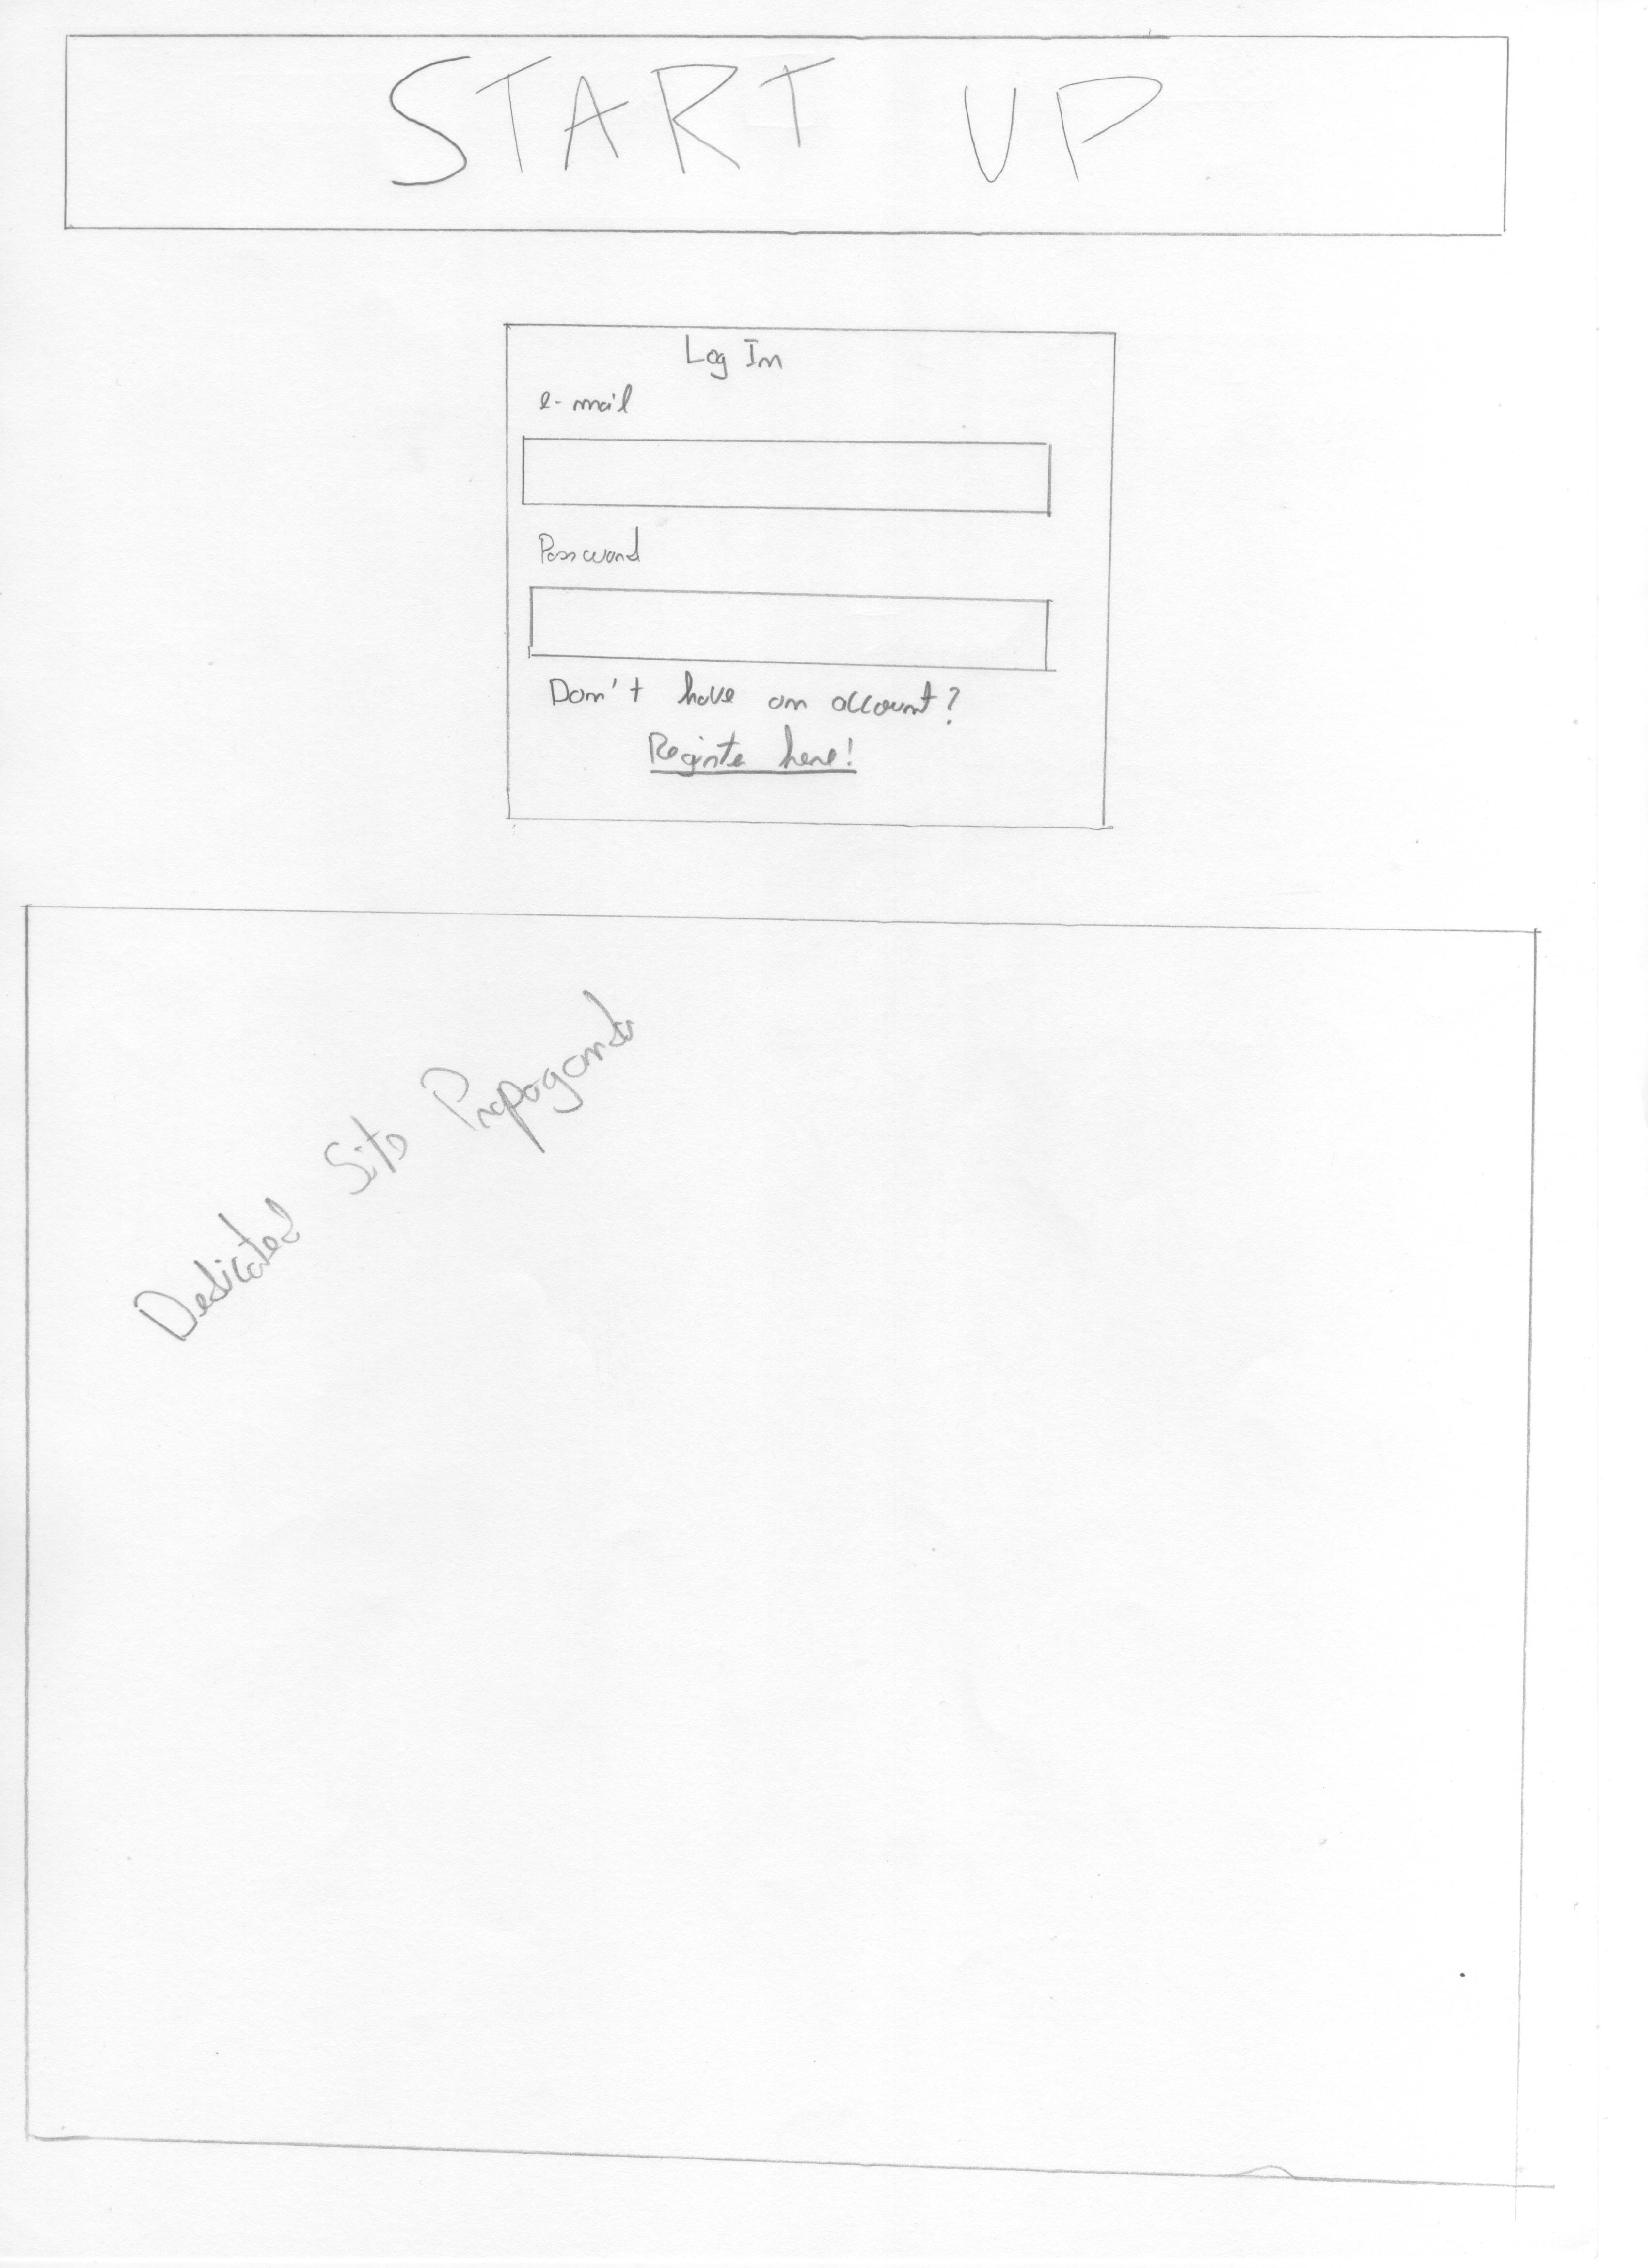 START UP
Log In
e-mail
Password
Don't have an account?
Register here!
Dedicated Sito Propaganda